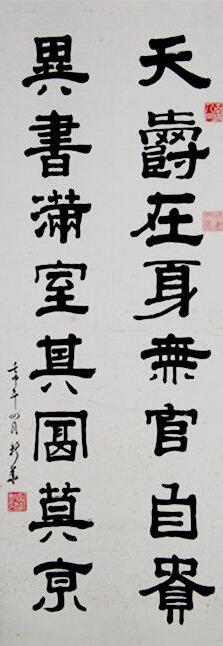 天爵在身無官自貴
異書滿室其富莫京
壬午四月